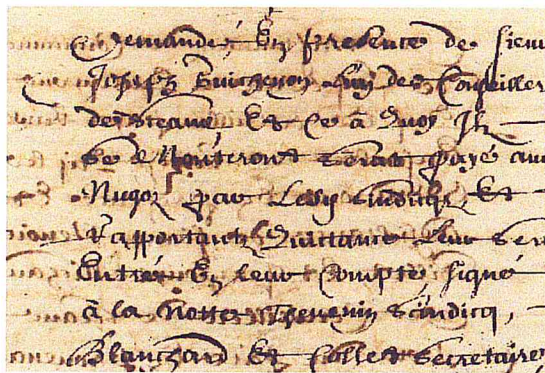 demandé En presence de sieur
Joseph Guichenon L'un des Conseillers
de Et Ce à quoy Ilz
se Monteront sera payé au
Nugoz par Lesd sindiqz Et
rapportantz Quittance leur sera
Entrée En leur Compte signé
à la notte Thevenin scindicq,
Blanchard Et Collet Secretaire